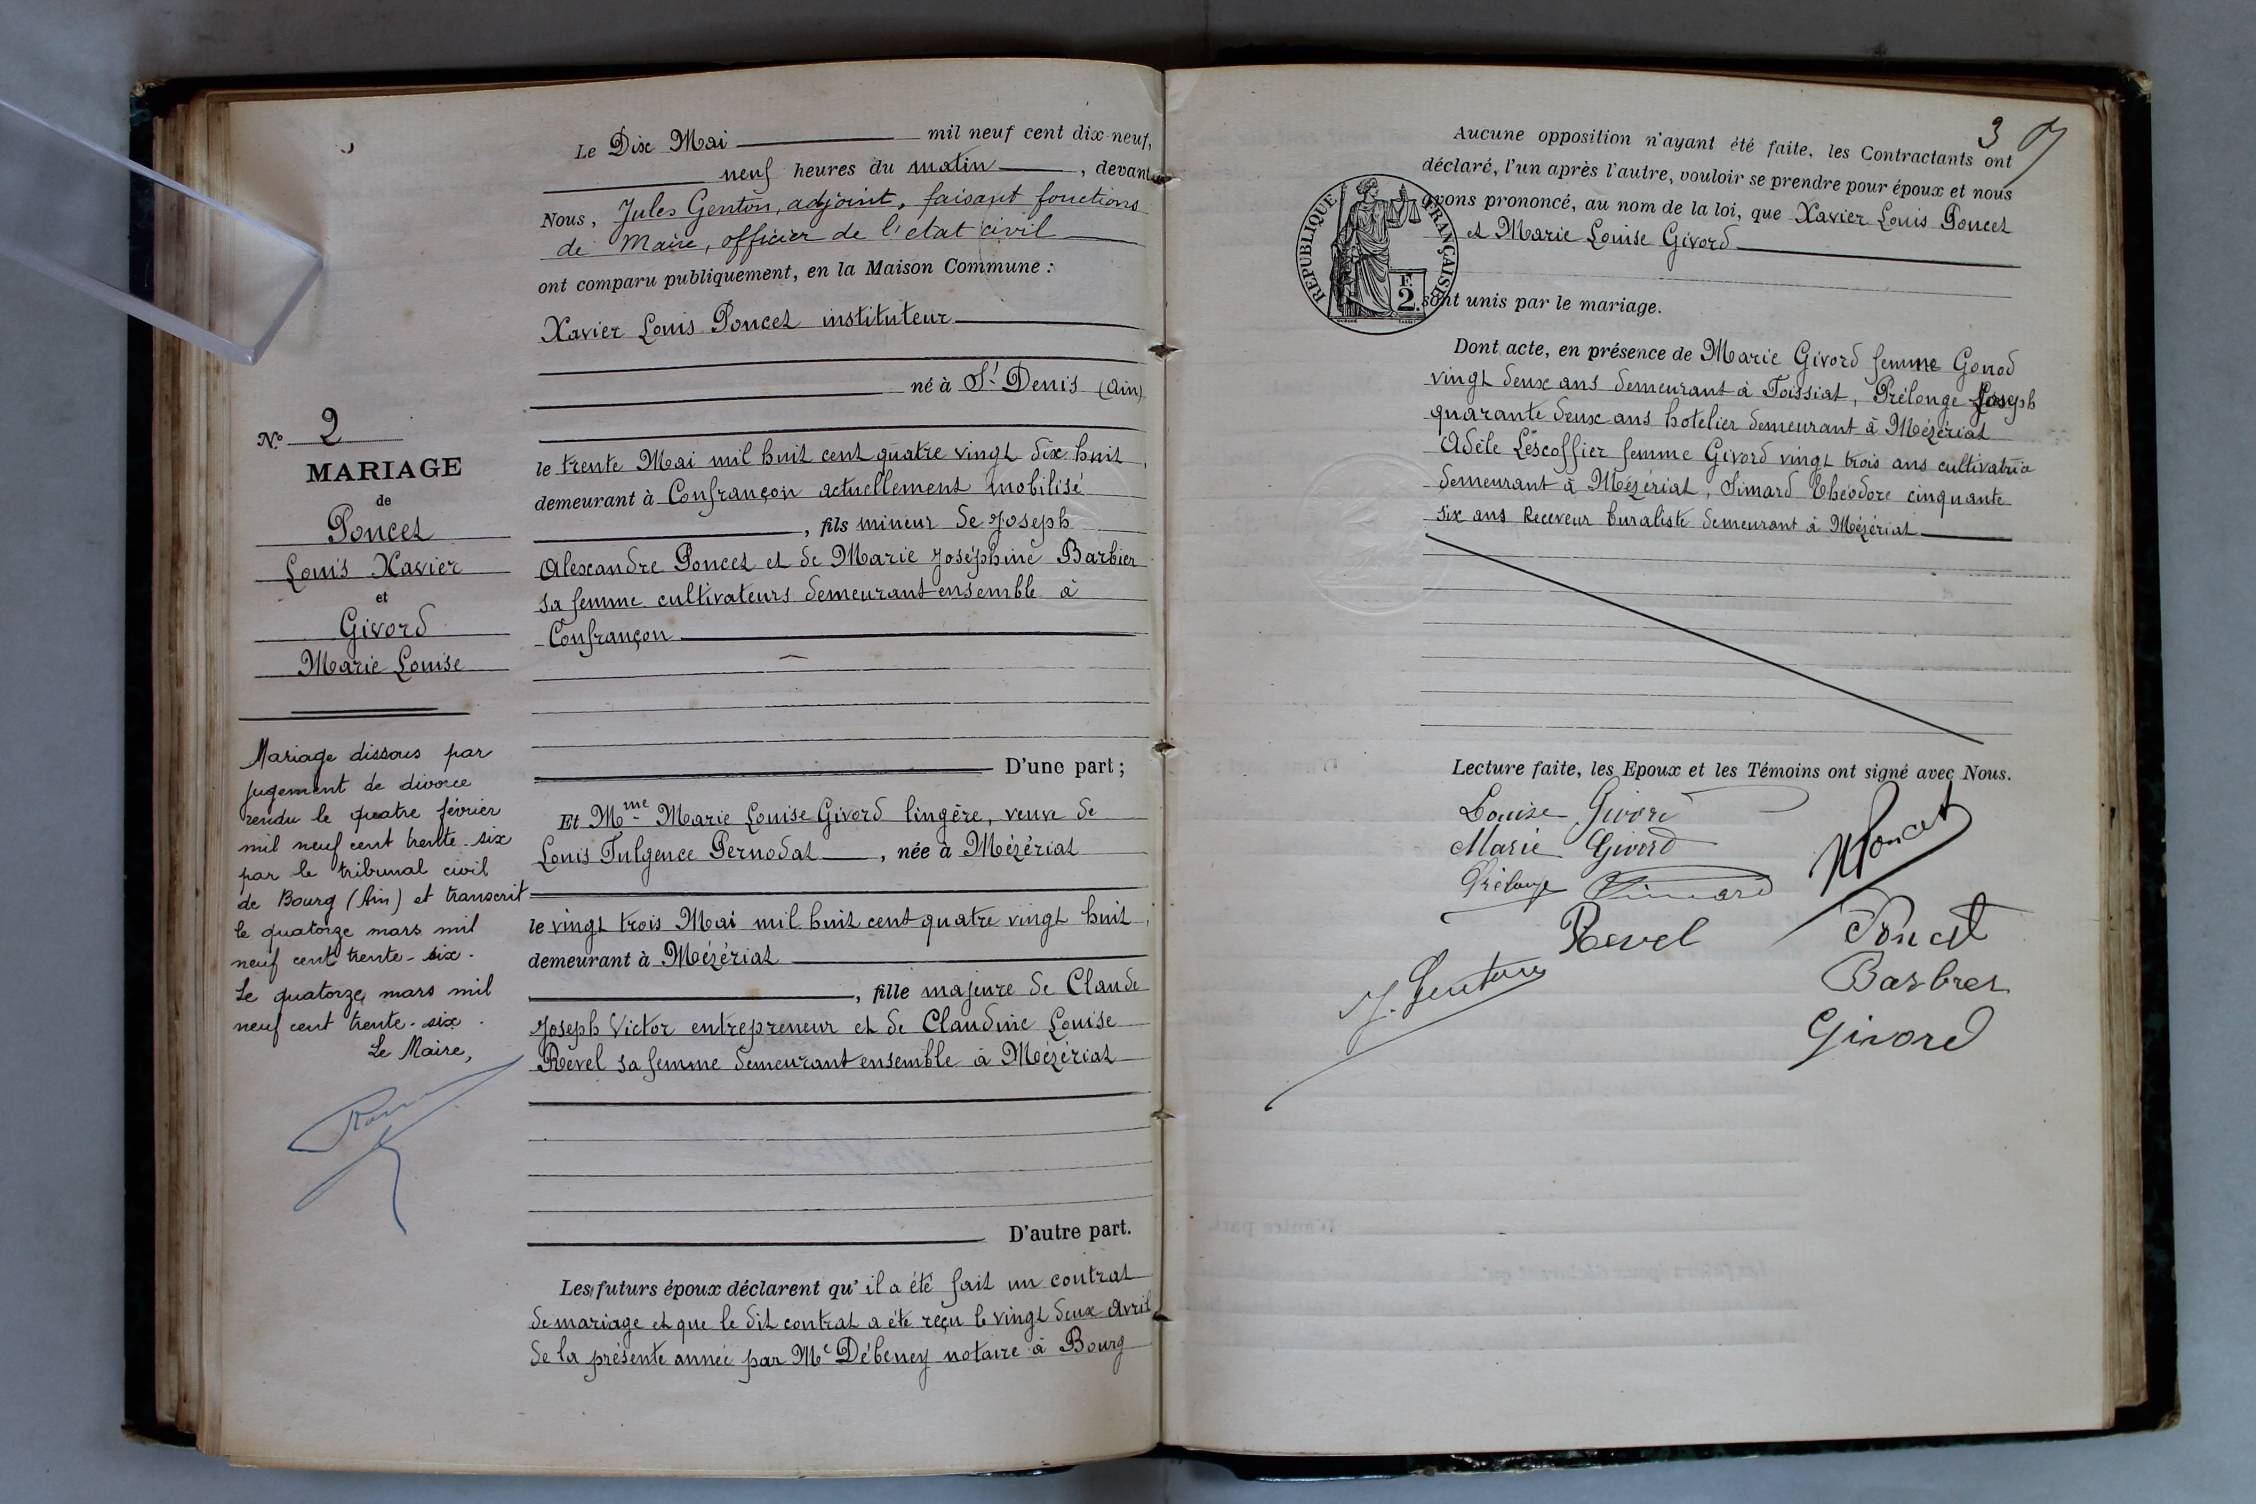 Le Dix Mai mil neuf cent dix-neuf,
neuf heures du matin, devant
Nous, Jules Genton, adjoint, faisant fonctions
de Maire, officier de l'etat civil
ont comparu publiquement, en la Maison Commune :
Xavier Louis Poncet instituteur
né à St Denis (Ain)
le trente Mai mil huit cent quatre vingt dix huit,
demeurant à Confrançon actuellement mobilisé
, fils mineur de Joseph
Alexandre Poncet et de Marie Joséphine Barbier
sa femme cultivateurs demeurant ensemble à
Confrançon
D'une part ;
Et Mme Marie Louise Givord lingère, veuve de
Louis Fulgence Pernodat, née à Mézériat
le vingt trois Mai mil huit cent quatre vingt huit,
demeurant à Mézériat
, fille majeure de Claude
Joseph Victor entrepreneur et de Claudine Louise
Revel sa femme demeurant ensemble à Mézériat
D'autre part.
Les futurs époux déclarent qu'il a été fait un contrat
de mariage et que le dit contrat a été reçu le vingt deux Avril
de la présente année par Me Débeney notaire à Bourg
No 2
MARIAGE
de
Poncet
Louis Xavier
et
Givord
Marie Louise
Mariage dissous par
jugement de divorce
rendu le quatre février
mil neuf cent trente-six
par le tribunal civil
de Bourg (Ain) et transcrit
le quatorze mars mil
neuf cent trente-six.
Le quatorze mars mil
neuf cent trente-six.
Le Maire,
3
Aucune opposition n'ayant été faite, les Contractants ont
déclaré, l'un après l'autre, vouloir se prendre pour époux et nous
avons prononcé, au nom de la loi, que Xavier Louis Poncet
et Marie Louise Givord
sont unis par le mariage.
RÉPUBLIQUE FRANÇAISE
F.
2.
Dont acte, en présence de Marie Givord femme Gonod
vingt deux ans demeurant à Toissiat, Prélonge Joseph
quarante deux ans hotelier demeurant à Mézériat
Adèle Lescoffier femme Givord vingt trois ans cultivatrice
demeurant à Mézériat, Simard Théodore cinquante
six ans Receveur buraliste demeurant à Mézériat
Lecture faite, les Epoux et les Témoins ont signé avec Nous.
Louise Givord
Marie Givord
XPoncet
Prélonge Simard
Revel
Poncet
J. Genton
Barbier
Givord